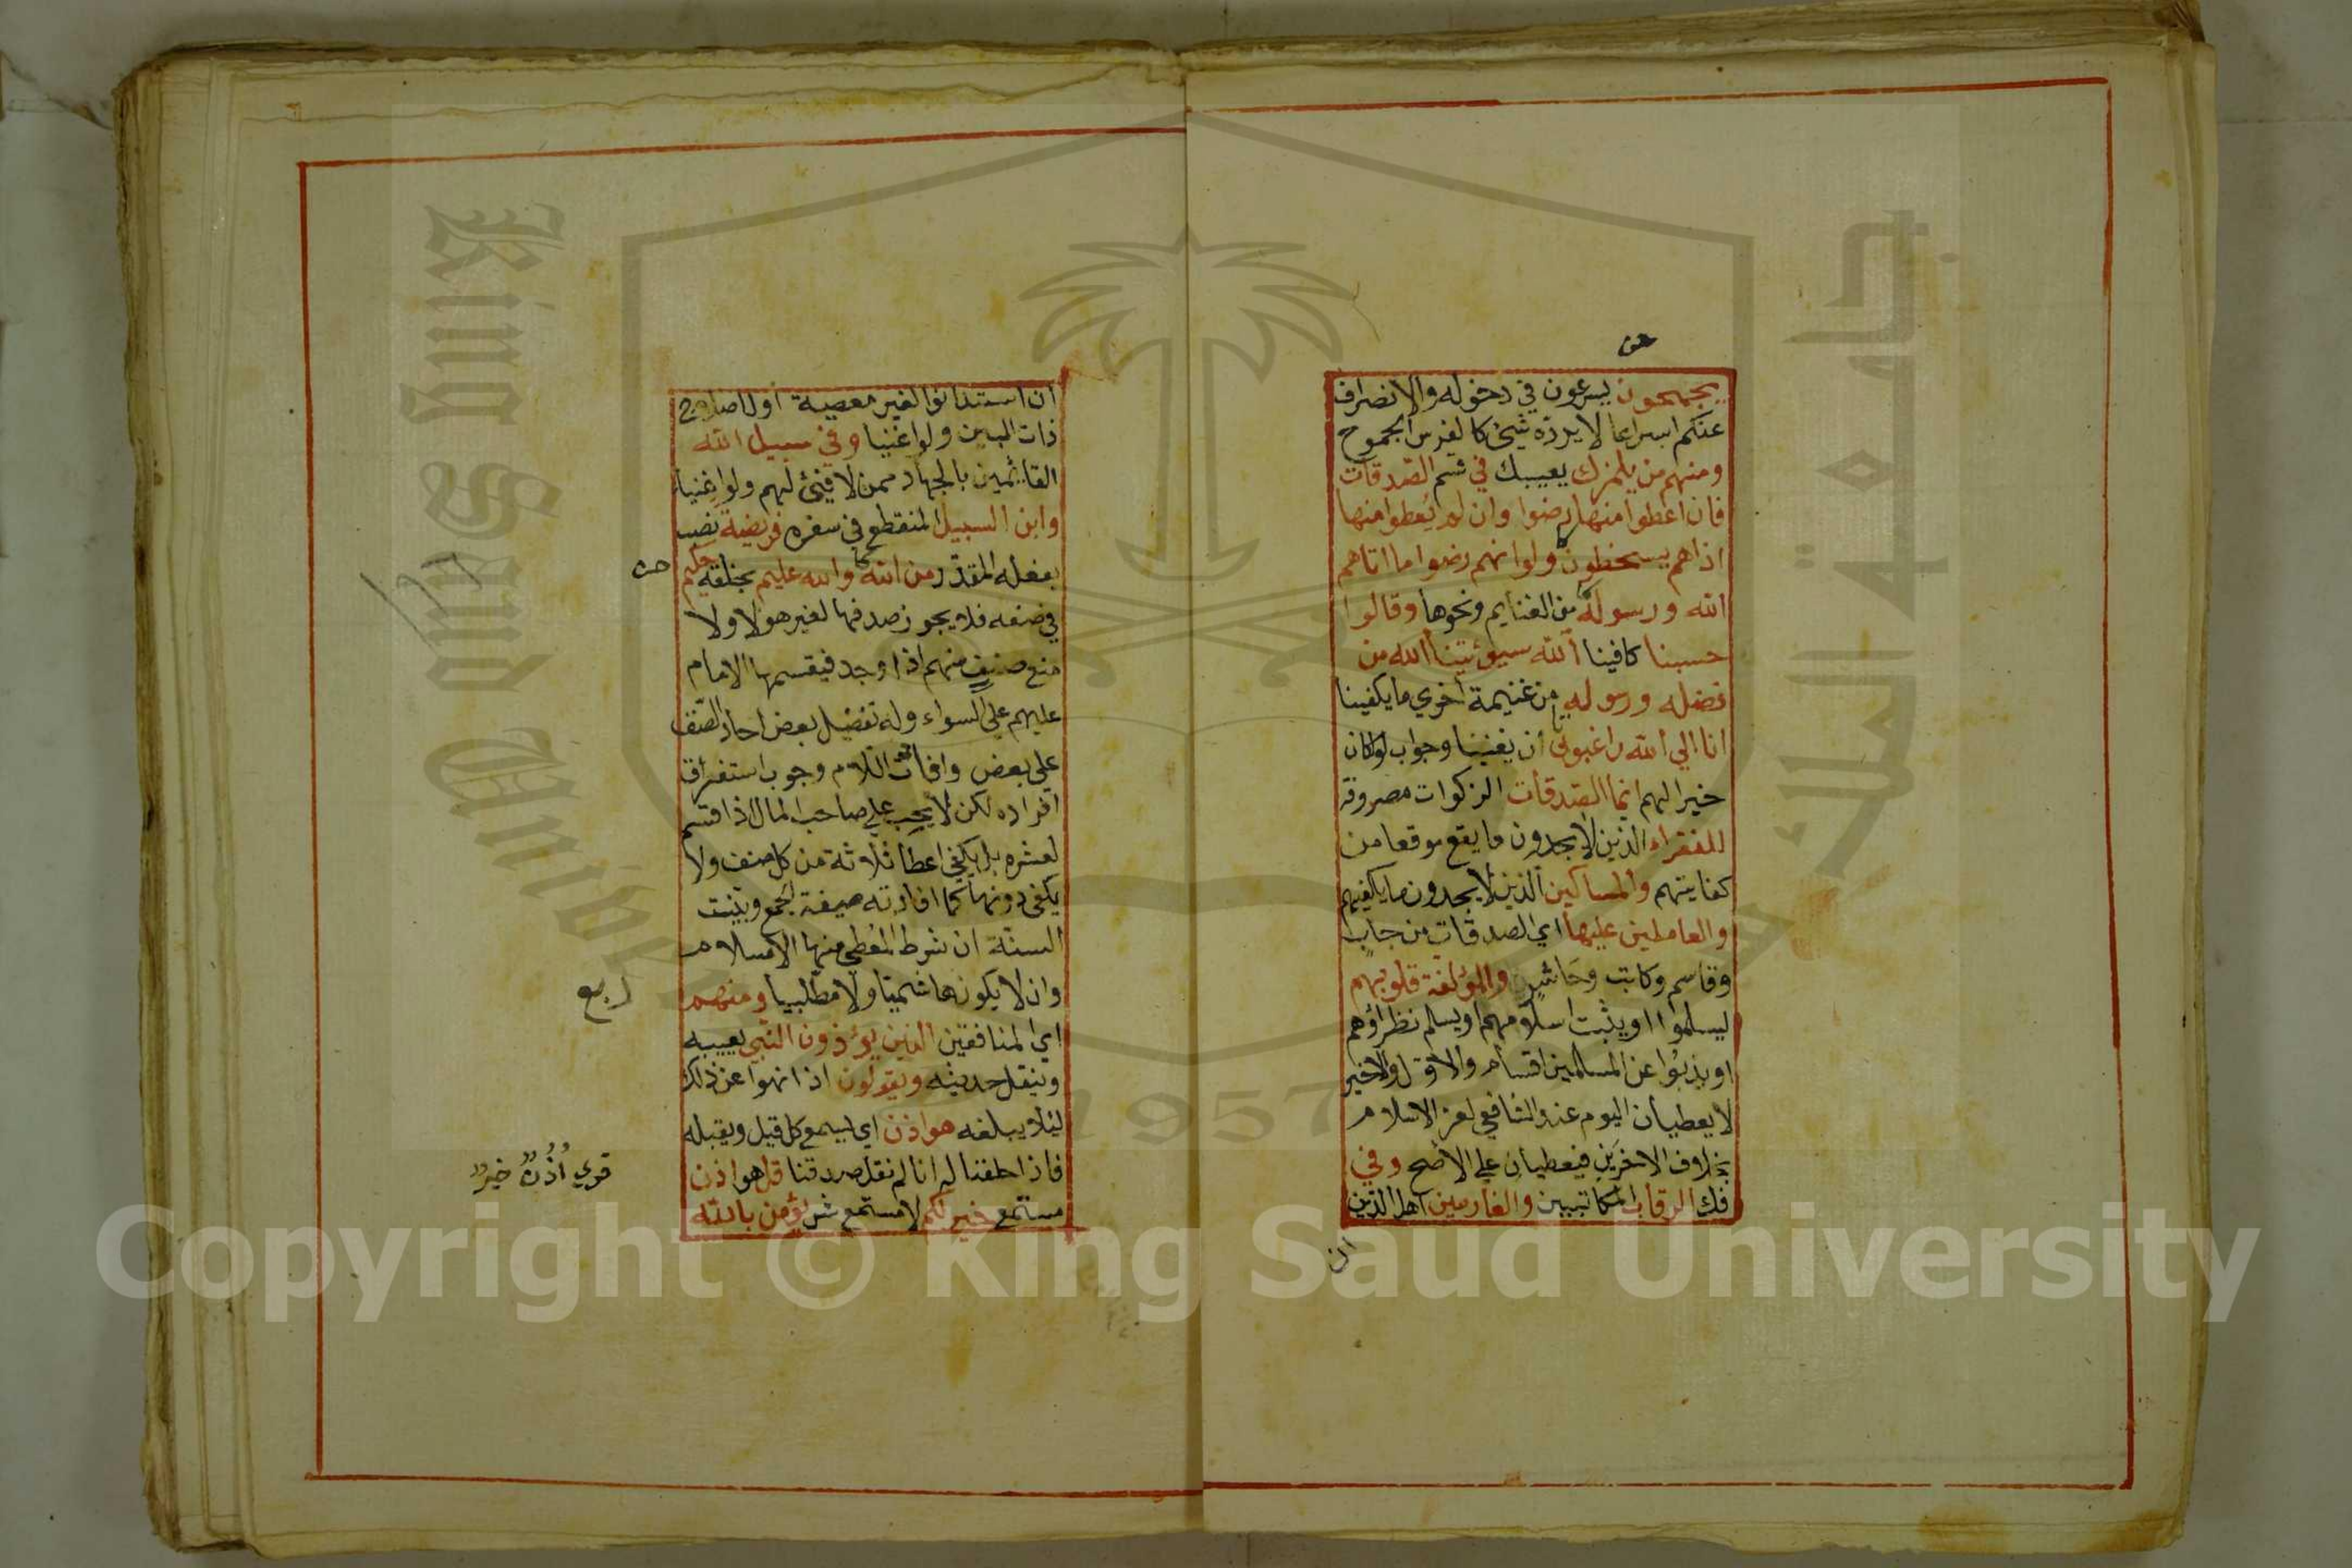 يجمحون يسرعون في دخوله والانصراف
عنكم اسراعا لا يرده شيئ كالفرس الجموح
ومنهم من يلمزك يعيبك في قسم الصّدقات
فان اعطوا منها رضوا وان لم يعطوا منها
اذا هم يسخطون ولو انهم رضوا ما اتاهم
الله ورسوله من الغنايم ونحوها وقالوا
حسبنا كافينا الله سيوئتينا الله من
فضله ورسوله من غنيمة اخري ما يكفينا
انا الي الله راغبون ان يغنينا وجواب لو لكان
خيرا لهم انما الصّدقات الزكوات مصروفة
للفقراء الذين لا يجدون ما يقع موقعا من
كفايتهم والمساكين الذين لا يجدون ما يكفيهم
والعاملين عليها اي الصدقات من جاب
وقاسم وكاتب وحاشر والمؤلفة قلوبهم
ليسلموا او يثبت اسلامهم او يسلم نظراؤهم
او يذبوا عن المسلمين اقسام والاوّل والاخير
لا يعطيان اليوم عند الشافعي لعز الاسلام
بخلاف الاخرَين فيعطيان علي الاصح وفي
فك الرقاب المكاتبين والغارمين اهل الدّين
ان
ان استدانوا لغير معصية او لاصلاح
ذات البين ولو اغنيا وفي سبيل الله
القائمين بالجهاد ممن لا فيئ لهم ولو اغنياء
وابن السبيل المنقطع في سفره فريضة نصب
بفعله المقدّر من الله والله عليم بخلقه حكيم
في صنعه فلا يجوز صرفها لغير هولا ولا
منع صنف منهم اذا وجد فيقسمها الامام
عليهم علي السواء وله تفضيل بعض احاد الصّنف
علي بعض وافادت اللام وجوب استغراق
افراده لكن لا يجب علي صاحب المال اذا قسم
لعسره بل يكفي اعطا ثلاثة من كل صنف ولا
يكفي دونها كما افادته صيغة الجمع وبيّنت
السنّة ان شرط المعطي منها الاسلام
وان لا يكون هاشميّا ولا مطّلبيا ومنهم
ربع
اي المنافقين الذين يوذون النّبي بعيبه
وبنقل حديثه ويقولون اذا نهوا عن ذلك
لئلا يبلغه هو اذن اي يسمع كل قيل ويقبله
فاذا حلفنا له انا لم نقل صدقنا قل هو اذن
قري اُذُنٌ خيرٌ
مستمع خير لكم لا مستمع شر يؤمن بالله
King Saud University
جامعة الملك سعود
1957
Copyright © King Saud University